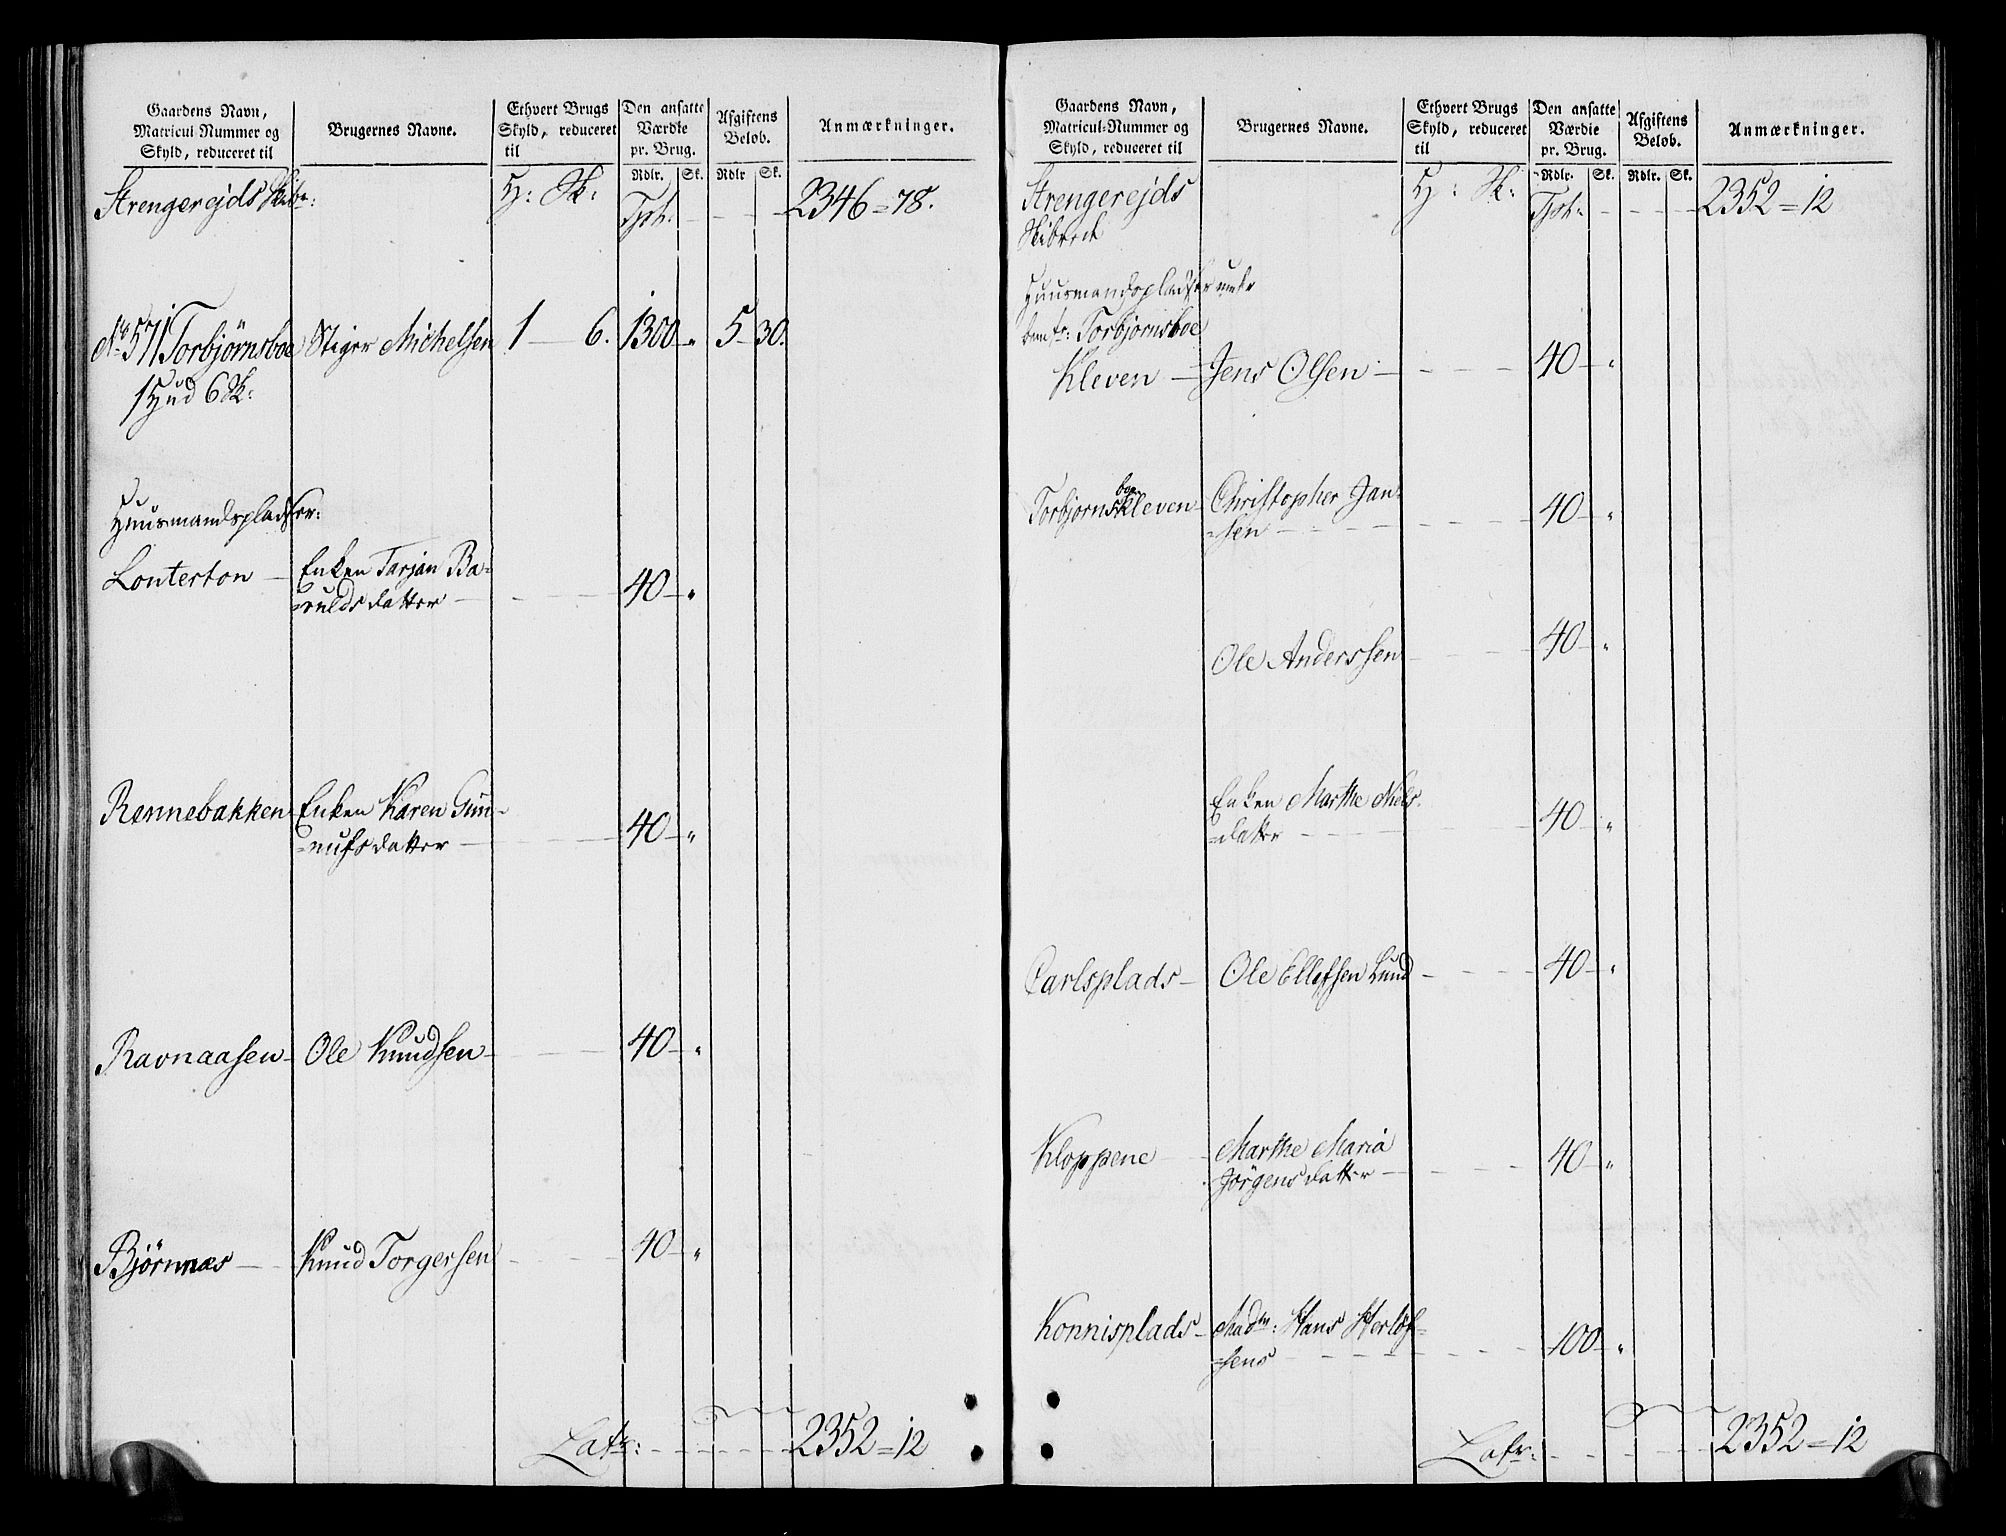 Gaardens Navn,
Matricul-Nummer og
Skyld, reduceret til
Brugernes Navne.
Ethvert Brugs
Skyld, reduceret
til
Den ansatte
Værdie
pr. Brug.
Afgiftens
Beløb.
Anmærkninger.
Rdlr. Sk. Rdlr Sk.
Strengerejds Skibr: H: Sk: Tpt: - - - 2346 = 78.
No 571 Torbjørnsboe Stiger Michelsen 1 - 6. 1300 - " 5 - 30.
1 Hud 6 Sk:
Huusmandspladser:
Lonterton - Enken Tarjan Ba-
=rulds datter - - - - 40 - "
Rennebakken Enken Karen Gun-
=nufs datter - - - - 40 - "
Ravnaasen - Ole Knudsen - - - 40 - "
Bjørnnæs - Knud Torgersen - - - 40 - "
Lafr: - - - - 2352 = 12
Gaardens Navn,
Matricul-Nummer og
Skyld, reduceret til
Brugernes Navne.
Ethvert Brugs
Skyld, reduceret
til
Den ansatte
Værdie
pr. Brug.
Afgiftens
Beløb.
Anmærkninger.
Rdlr. Sk. Rdlr. Sk.
Strengerejds H: Sk: Tpt: - - - 2352 = 12
Skibrede
Huusmandspladser under
bem te: Torbjornsboe
Kleven - Jens Olsen - - - - 40 - "
Torbjornsboekleven - Christopher Jan-
=sen - - - - 40 - "
Ole Anderssen - - - 40 - "
Enken Marthe Niels-
=datter - - - - 40 - "
Carlsplads - Ole Ellefsen Lund - - - 40 - "
Kloppene - Marthe Maria
Jörgens datter - - - - 40 - "
Konnisplads - Mad m: Hans Herlof-
=sens - - - - 100 - "
Lafr: - - - - 2352 = 12